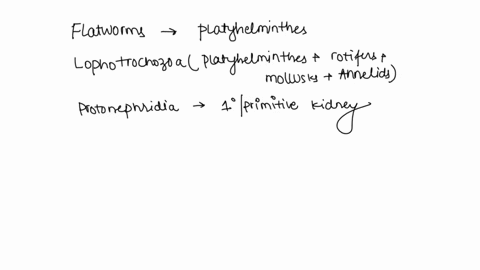 Flatworms → Platyhelminthes
Lophotrochozoa (Platyhelminthes + rotifers +
mollusks + Annelids)
Protonephridia → 1° / primitive kidney